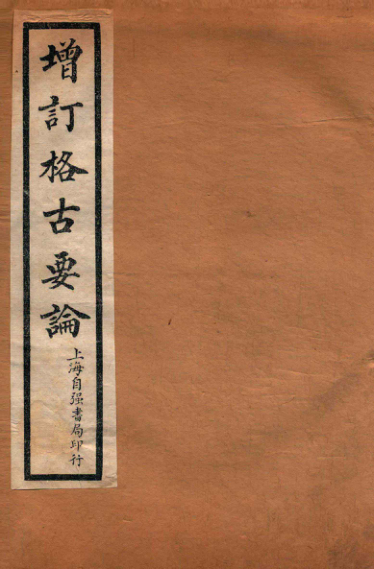 增訂格古要論
上海自强書局印行